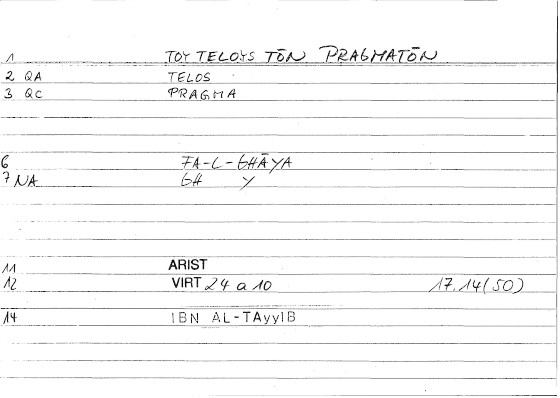 1 TOY TELOYS TŌN PRAGMATŌN
2 QA TELOS
3 QC PRAGMA
6 FA-L-GHĀYA
7 NA GH Y
11 ARIST
12 VIRT 24 a 10 17.14(50)
14 IBN AL-TAyyIB